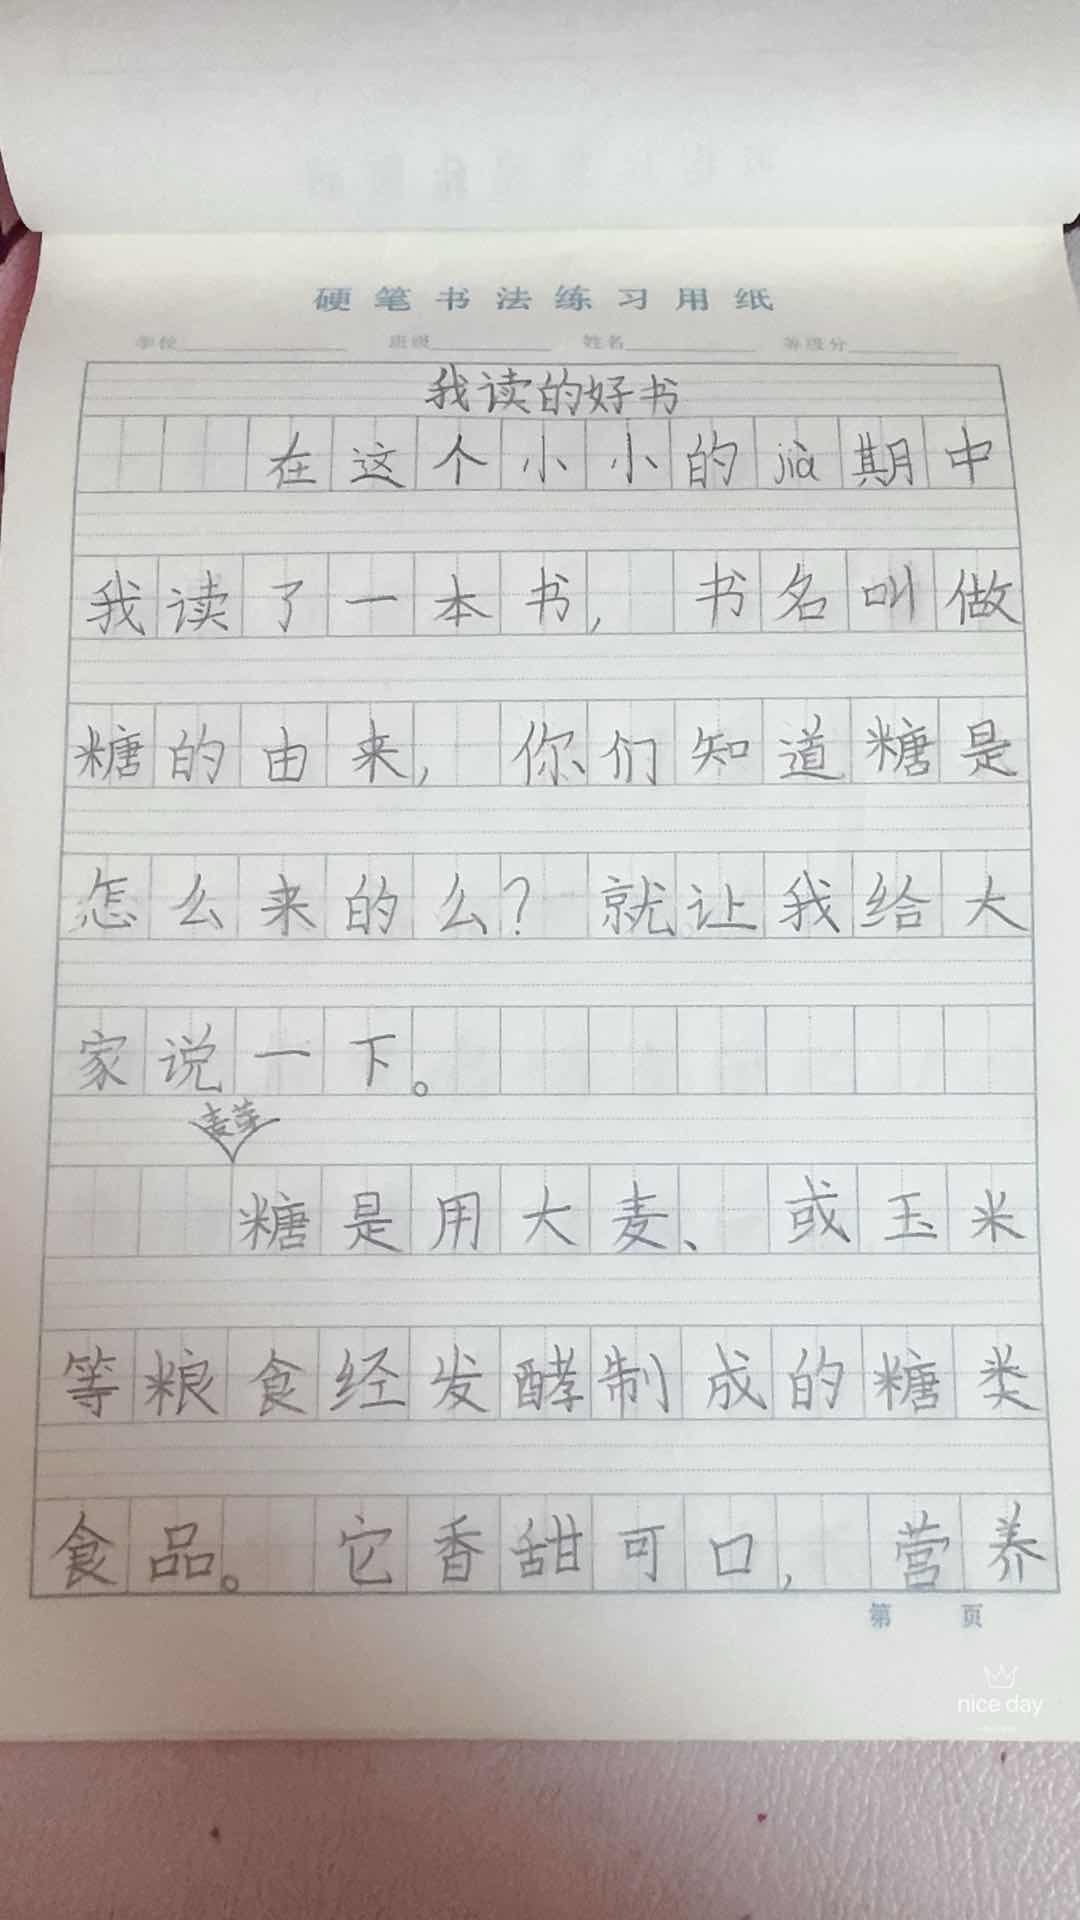 硬笔书法练习用纸
学校 班级 姓名 等级分
我读的好书
在这个小小的jià期中
我读了一本书，书名叫做
糖的由来，你们知道糖是
怎么来的么？就让我给大
家说一下。
麦芽
糖是用大麦、或玉米
等粮食经发酵制成的糖类
食品。它香甜可口，营养
第 页
nice day